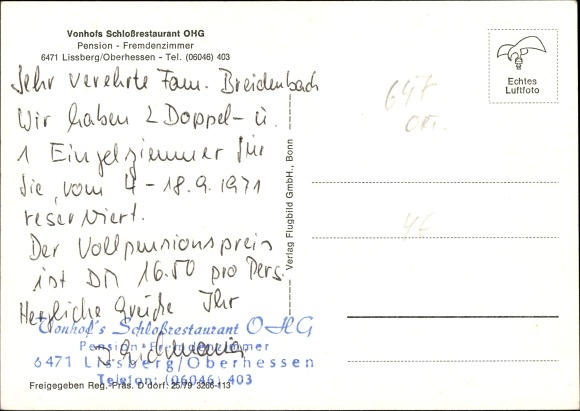 Vonhofs Schloßrestaurant OHG
Pension - Fremdenzimmer
6471 Lissberg/Oberhessen - Tel. (06046) 403
Echtes
Luftfoto
Sehr verehrte Fam. Breidenbach
Wir haben 2 Doppel- u.
1 Einzelzimmer für
Sie vom 4 - 18.9.1971
reserviert.
Der Vollpensionspreis
ist DM 16.50 pro Pers.
Herzliche Grüße Ihr
Vonhof's Schloßrestaurant OHG
Pension-Fremdenzimmer
6471 Lissberg/Oberhessen
Telefon: (06046) 403
Freigegeben Reg.-Präs. D'dorf: 25/79 3266-113
Verlag Flugbild GmbH., Bonn
647